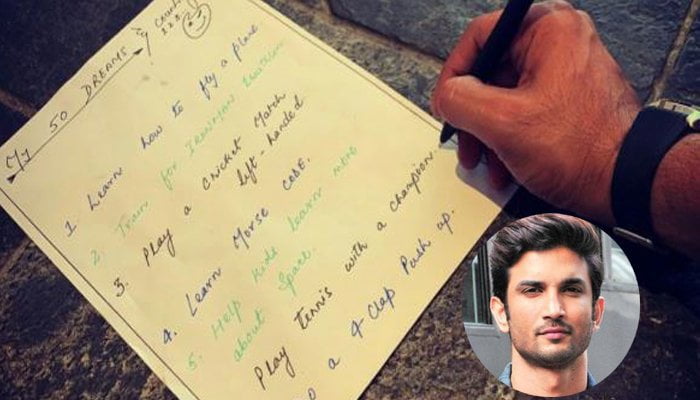 My 50 DREAMS &
1. Learn how to fly a plane
2. Train for IRONMAN triathlon
3. Play a cricket match
left-handed
4. Learn Morse CODE.
5. Help kids learn more
about Space.
Play tennis with a champion
a 4 Clap Push up.